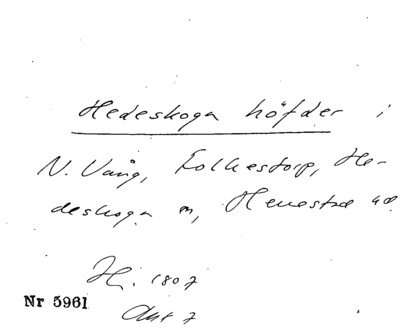 Hedeskoga höfder i
N. Vång, Folkestorp, He-
deskoga m, Henestad
H. 1807
Nr 5961